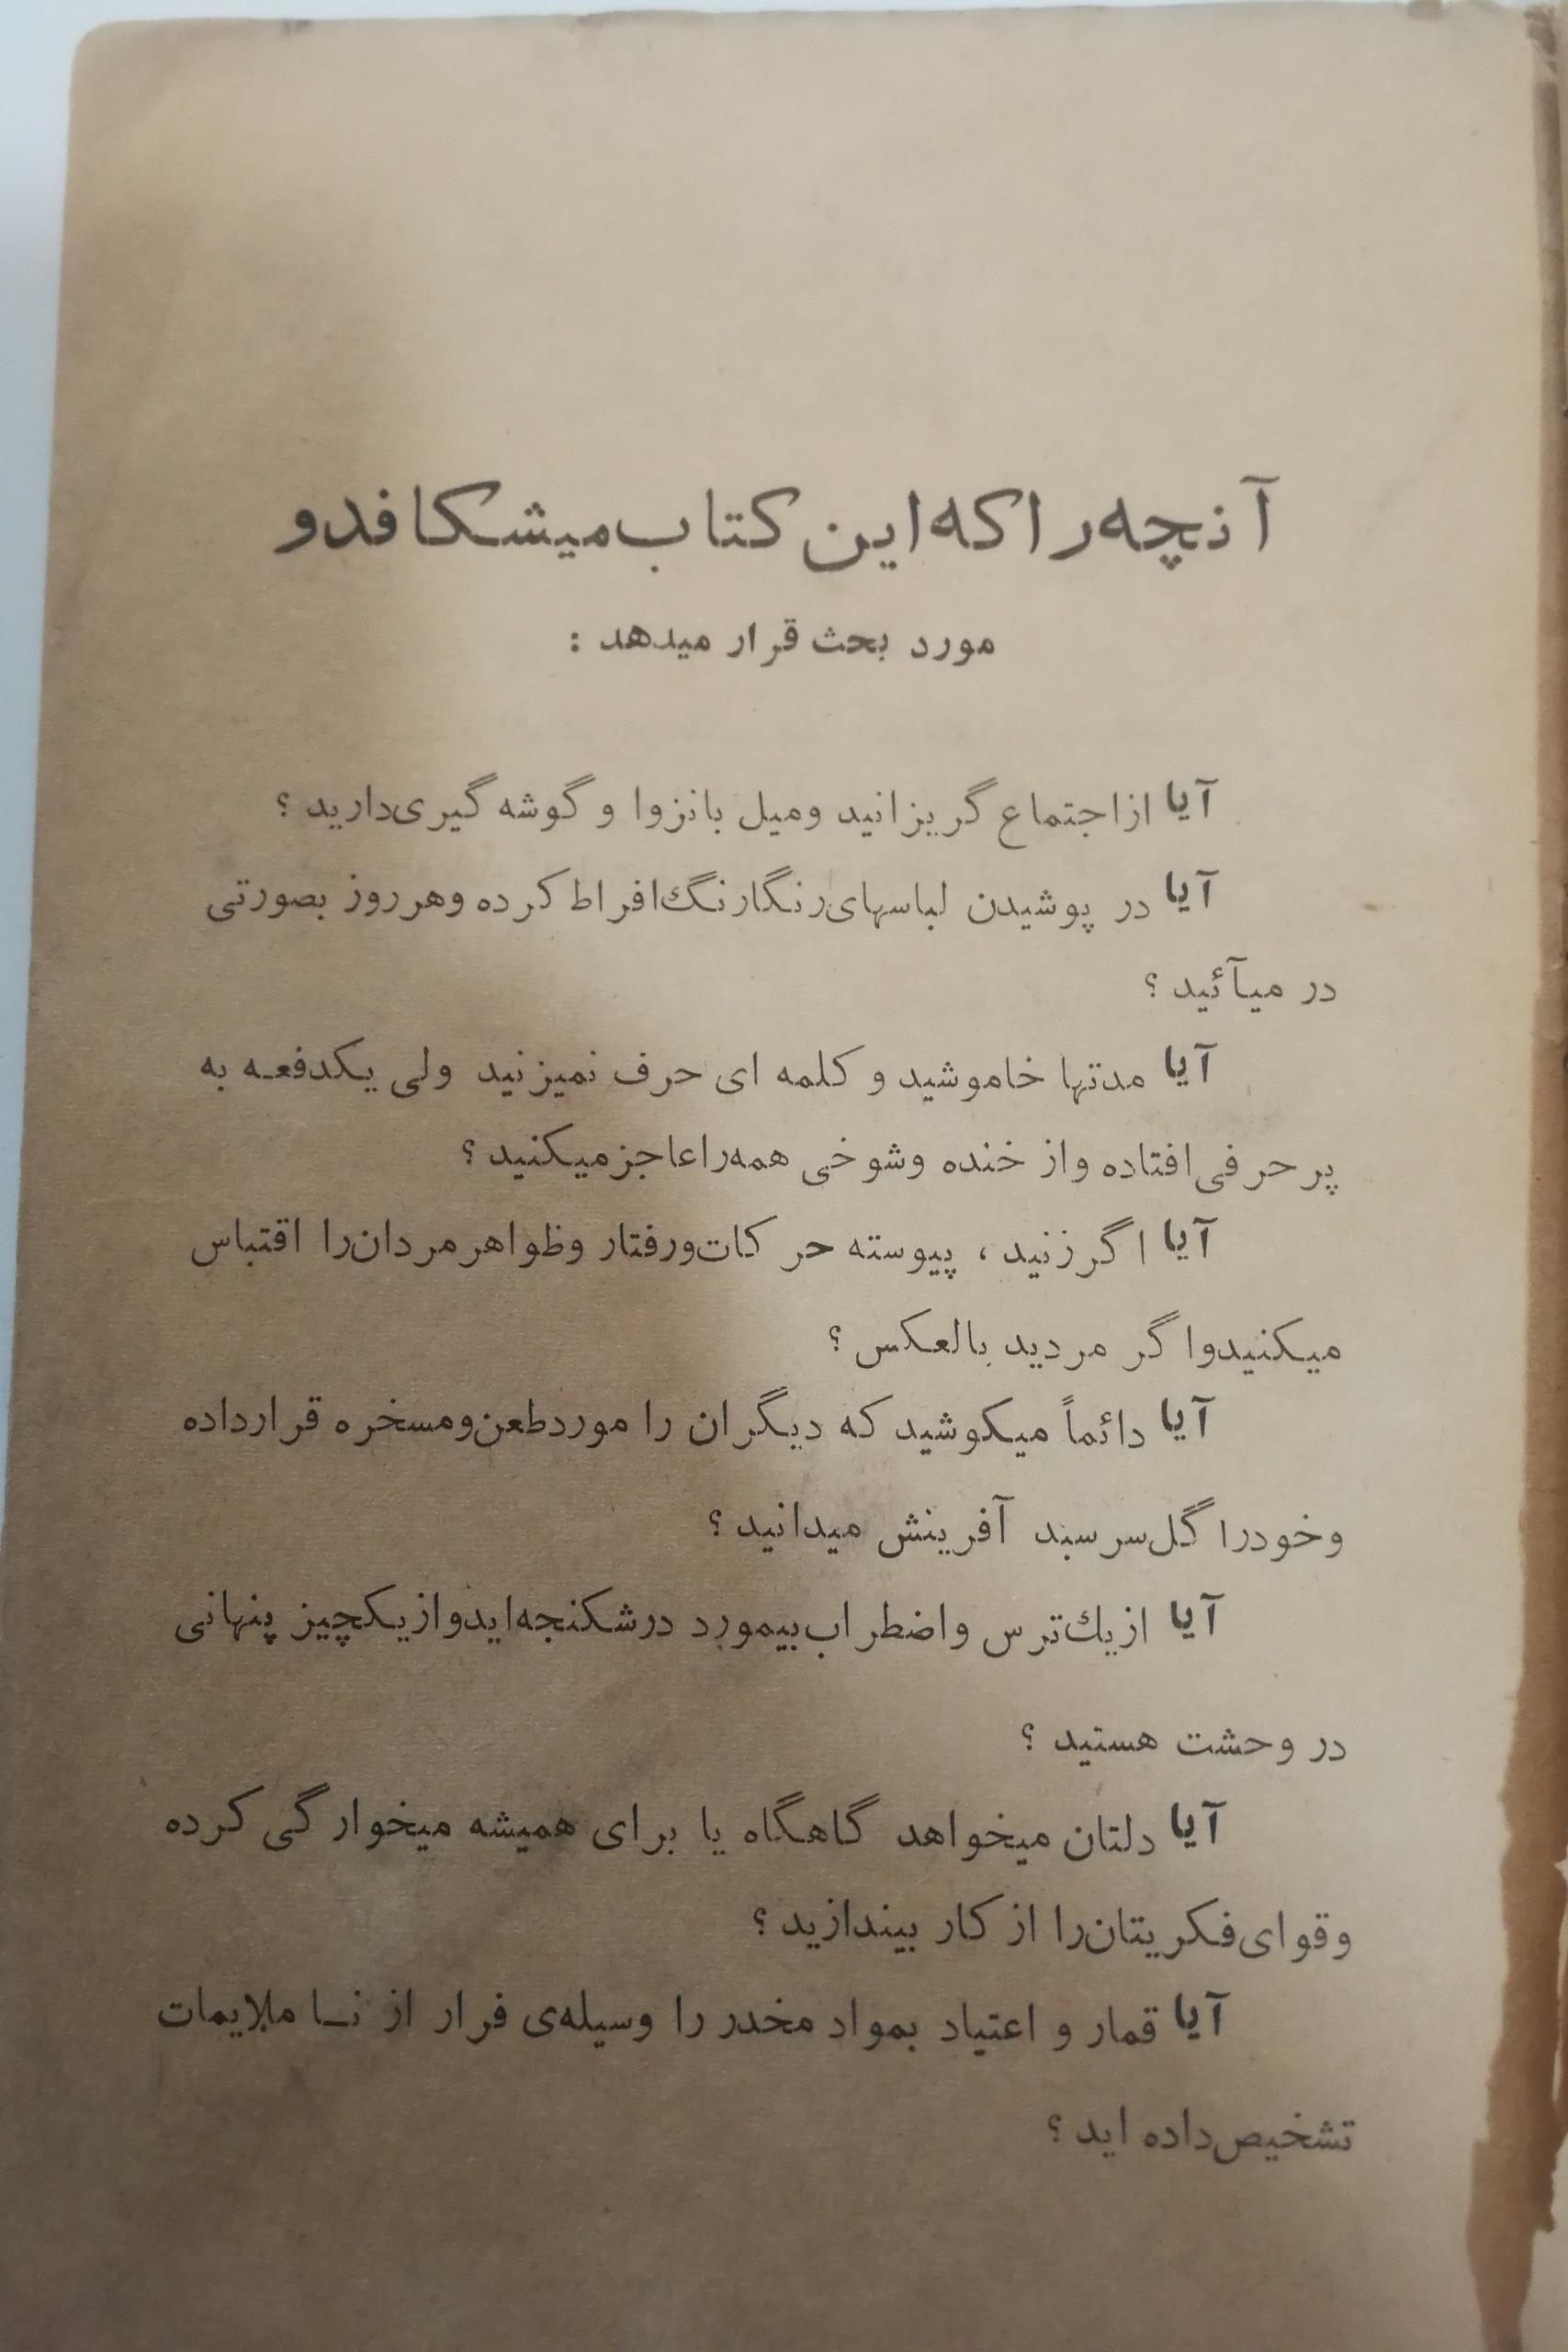 آنچه را که این کتاب میشکافد و
مورد بحث قرار میدهد :
آیا از اجتماع گریزانید ومیل بانزوا و گوشه گیری دارید ؟
آیا در پوشیدن لباسهای رنگارنگ افراط کرده وهرروز بصورتی
در میآئید ؟
آیا مدتها خاموشید و کلمه ای حرف نمیزنید ولی یکدفعه به
پر حرفی افتاده واز خنده وشوخی همه را عاجز میکنید ؟
آیا اگر زنید ، پیوسته حرکات ورفتار وظواهر مردان را اقتباس
میکنید واگر مردید بالعکس ؟
آیا دائماً میکوشید که دیگران را مورد طعن ومسخره قرار داده
وخود را گل سر سبد آفرینش میدانید ؟
آیا از یك ترس واضطراب بیمورد در شکنجه اید واز یکچیز پنهانی
در وحشت هستید ؟
آیا دلتان میخواهد گاهگاه یا برای همیشه میخوارگی کرده
وقوای فکریتان را از کار بیندازید ؟
آیا قمار و اعتیاد بمواد مخدر را وسیله‌ی فرار از نـا ملایمات
تشخیص داده اید ؟